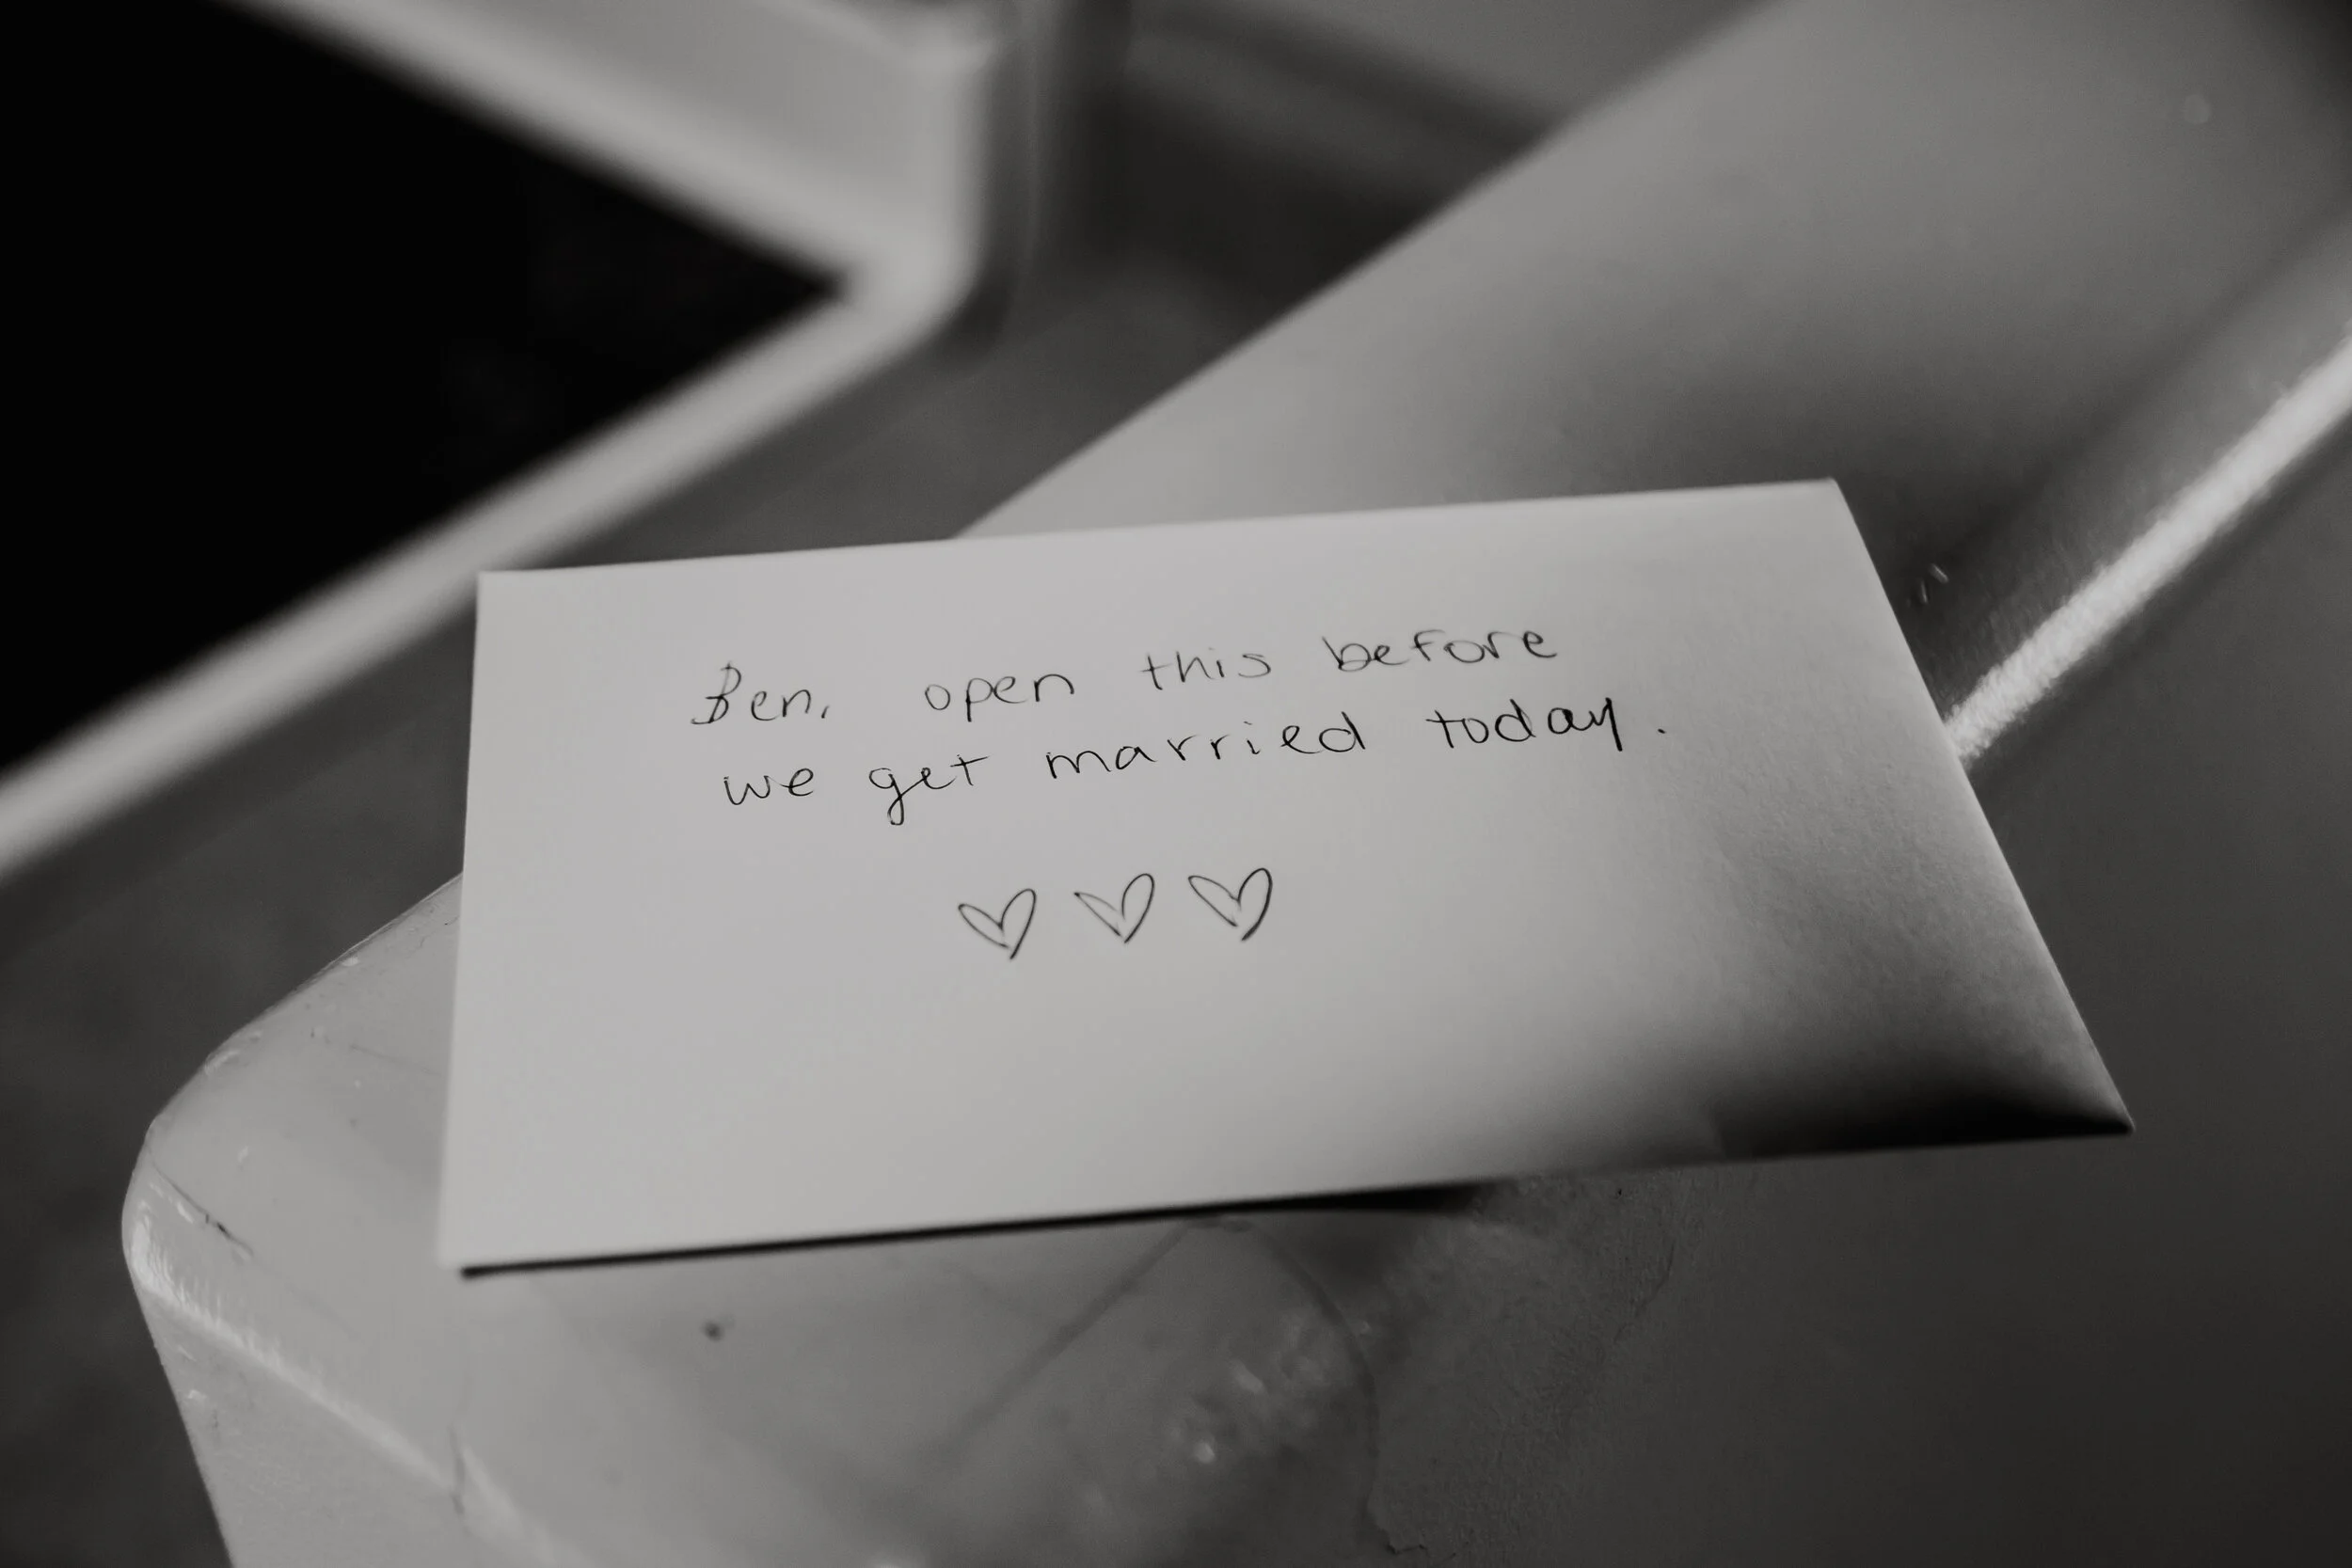 Ben, open this before
we get married today.
♡ ♡ ♡